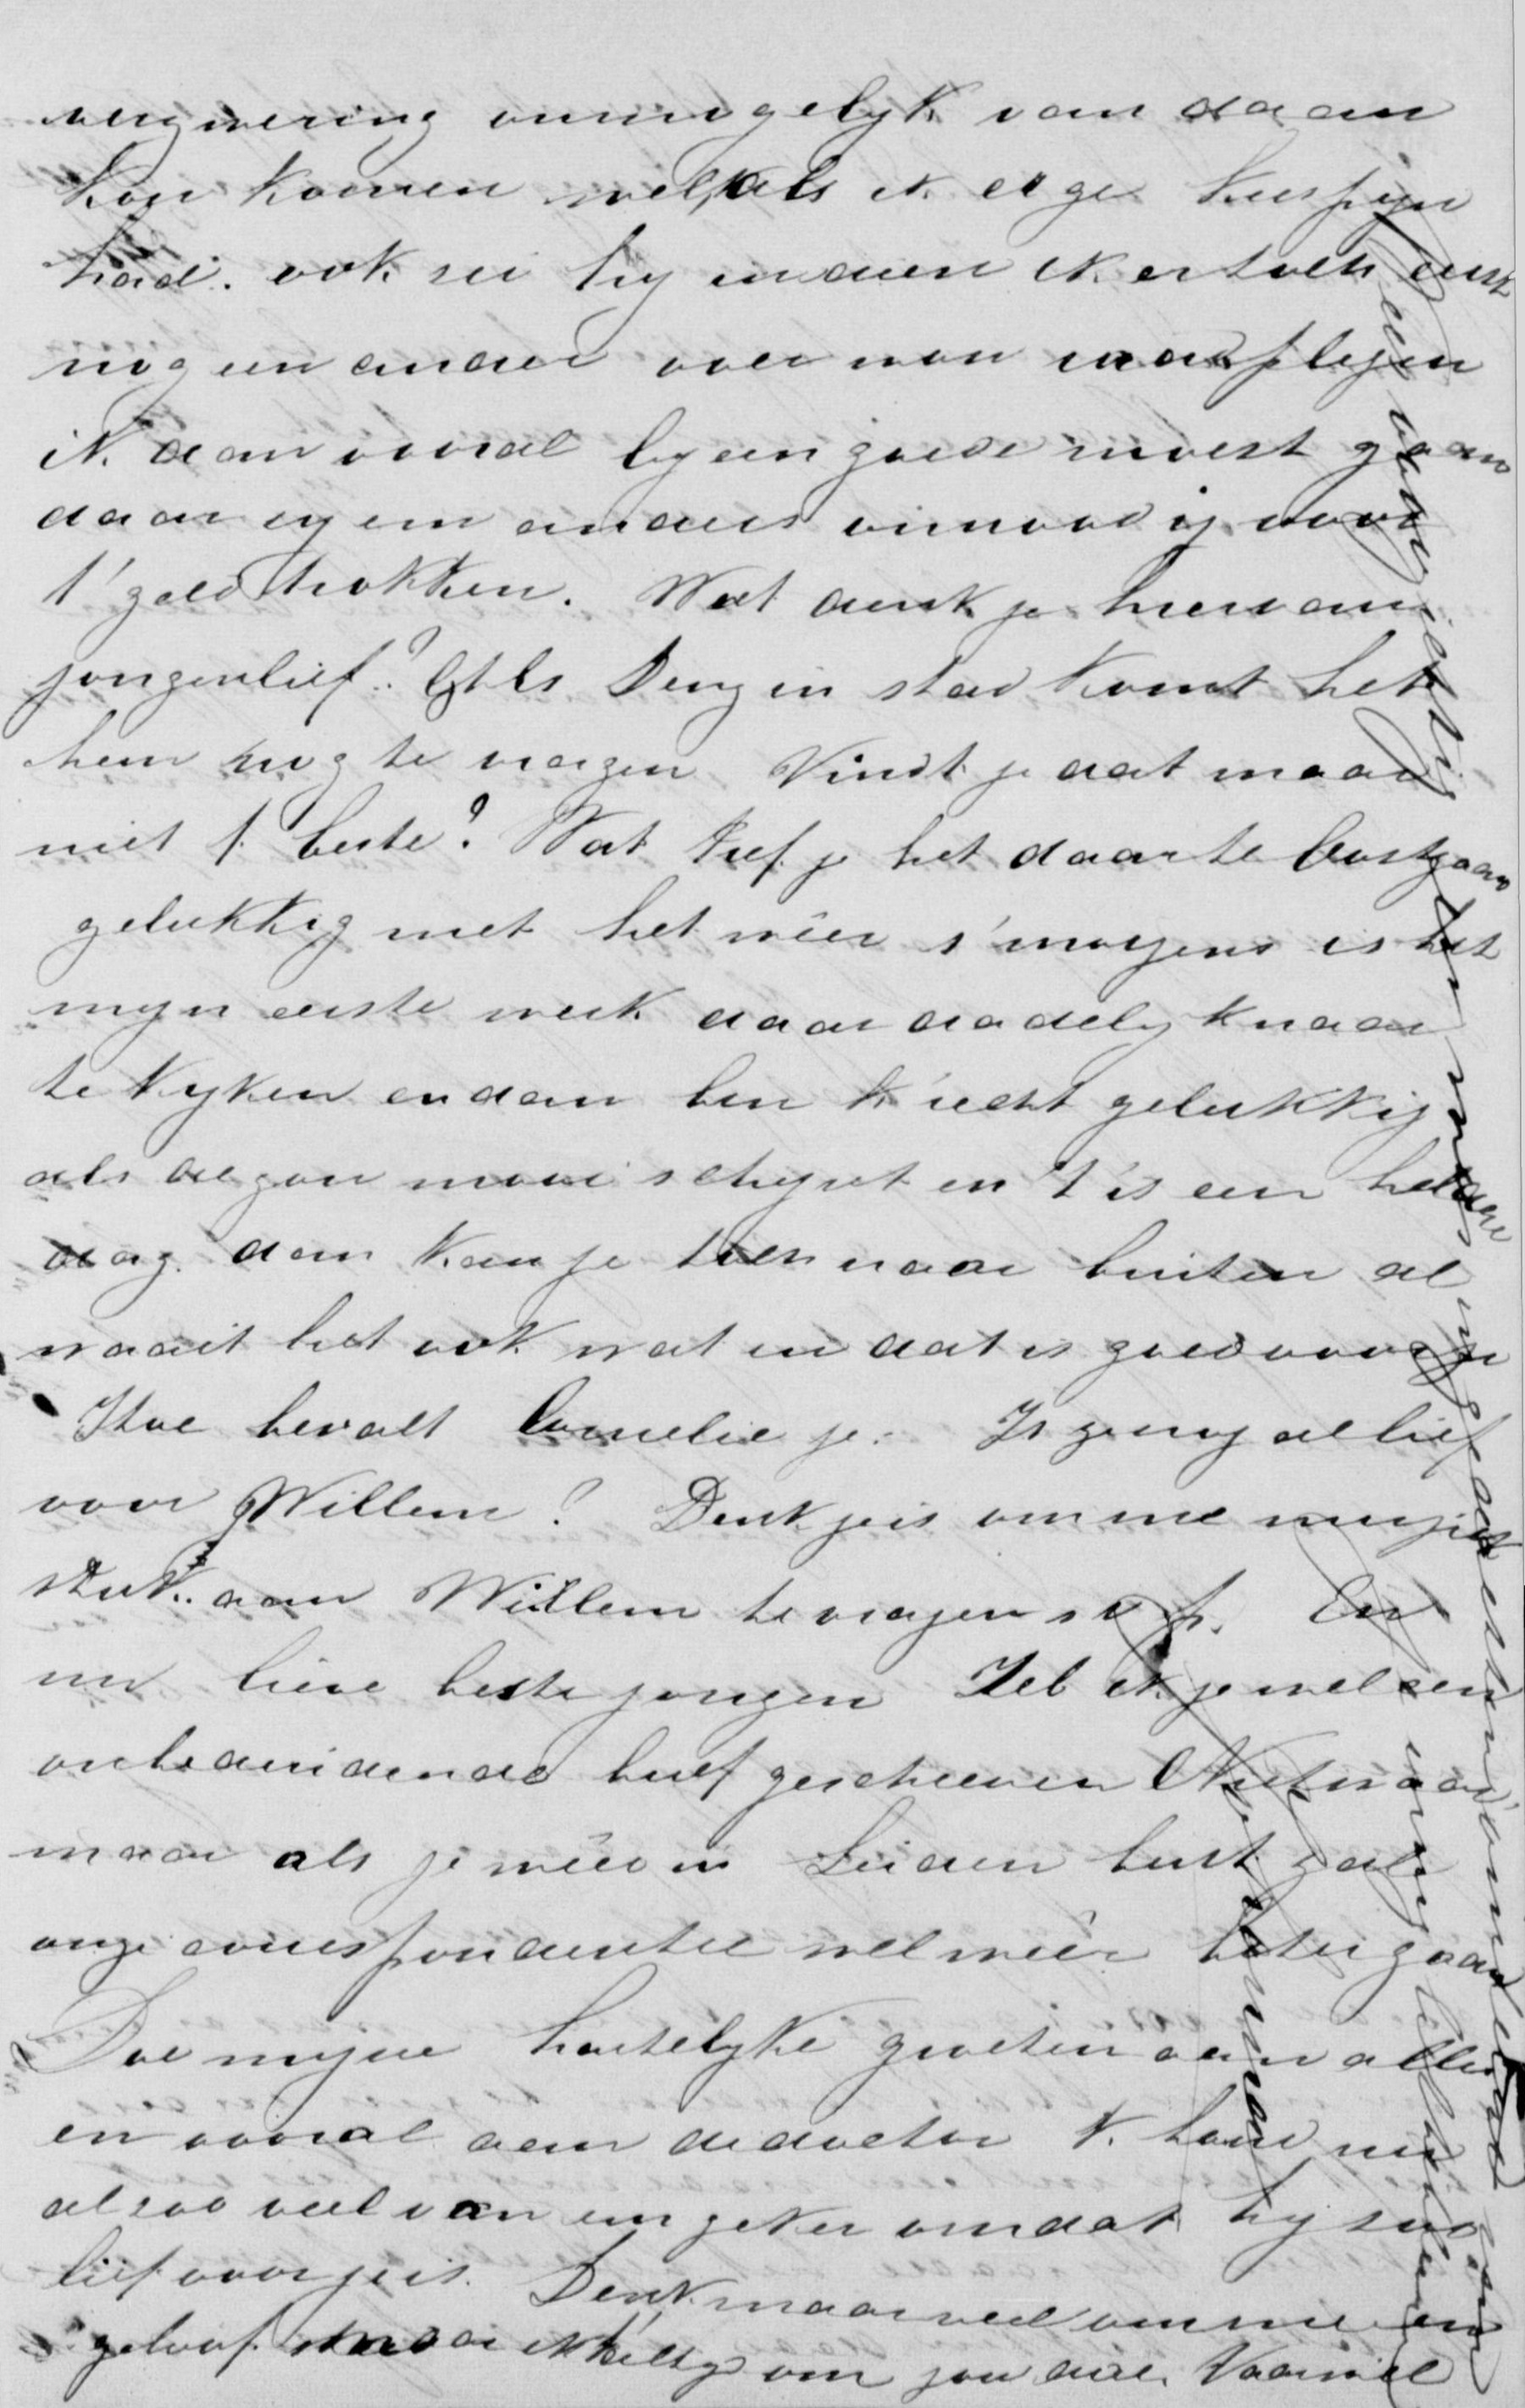 onmogelyk van daan
kon komen wel als ik erge kiespyn
had. ook zei hy indien ik er toch eerst
nog een ander over won raadplegen
ik dan vooral by een goede moest gaan
daar zy em anders onnoodig voor
t' geld trokken. Wat denk je hiervan
jongenlief? Als Deng in stad komt het
hem nog te vragen Vindt je dat maar
niet t beste? Wat tref je het daar te
gelukkig met het wêer s'morgens is het
myn eerste werk daar dadelyk naar
te kyken en dan ben k' recht gelukkig
als de zon mooi schynt en 't is een heldere
dag. dan kan je toch naar buiten al
waait het ook wat en dat is goed voor je
Hoe bevalt Cornelie je. Is ze nog al lief
voor Willem? Denk je is om me muziek
stuk aan Willem te vragen s v p. En
nu lieve beste jongen Heb ik je wel een
onbeduidende brief geschreven Niet waar,
maar als je wêer in Leiden bent zal
onze correspondentie wel wêer beter gaan
Doe myne hartelyke groeten aan allen
en vooral aan de doctor k. houd nu
al zoo veel van em zeker omdat hy zoo
lief voor je is. Denk maar veel om me en
geloof maar ik altyd om jou doe. Vaarwel